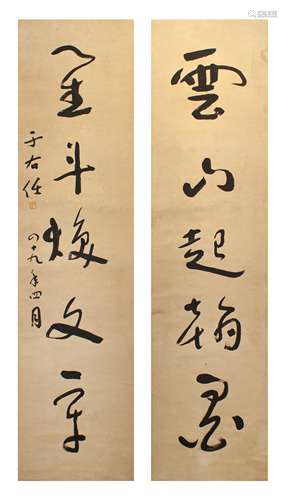 雲山起翰墨
星斗煥文章
于右任 四十九年四月